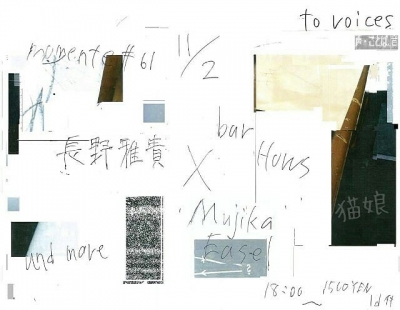 to voices
momento #61
11/2
bar
長野雅貴
X
Hons
猫娘
Mujika
Easel
und more
18:00 〜 1500YEN
1d付